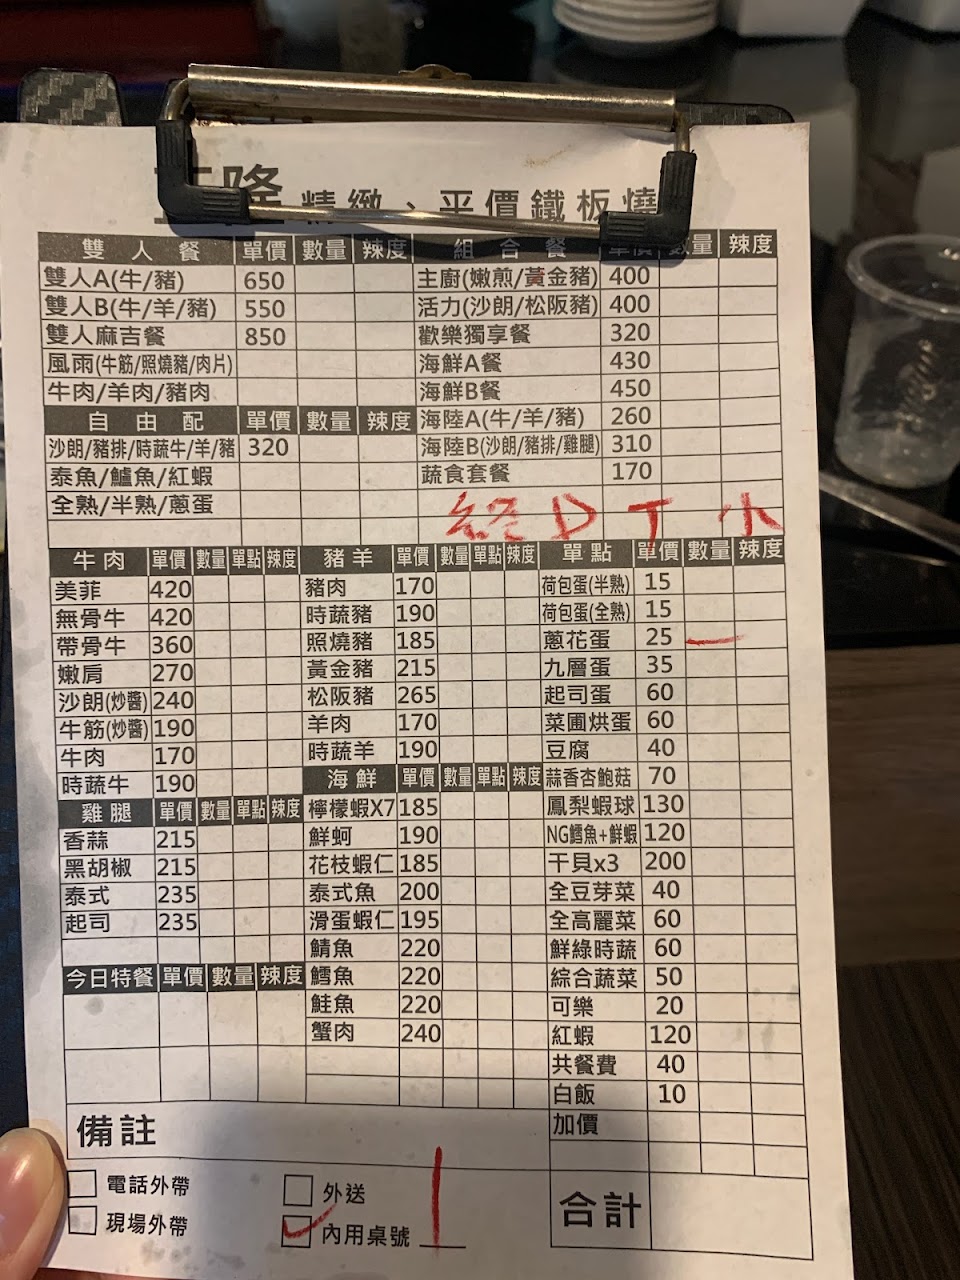 隆 精緻、平價鐵板燒
雙人餐 單價 數量 辣度 組合餐 單價 數量 辣度
雙人A(牛/豬) 650 主廚(嫩煎/黃金豬) 400
雙人B(牛/羊/豬) 550 活力(沙朗/松阪豬) 400
雙人麻吉餐 850 歡樂獨享餐 320
風雨(牛筋/照燒豬/肉片) 海鮮A餐 430
牛肉/羊肉/豬肉 海鮮B餐 450
自由配 單價 數量 辣度 海陸A(牛/羊/豬) 260
沙朗/豬排/時蔬牛/羊/豬 320 海陸B(沙朗/豬排/雞腿) 310
泰魚/鱸魚/紅蝦 蔬食套餐 170
全熟/半熟/蔥蛋
D T 小
牛肉 單價 數量 單點 辣度 豬羊 單價 數量 單點 辣度 單點 單價 數量 辣度
美菲 420 豬肉 170 荷包蛋(半熟) 15
無骨牛 420 時蔬豬 190 荷包蛋(全熟) 15
帶骨牛 360 照燒豬 185 蔥花蛋 25 一
嫩肩 270 黃金豬 215 九層蛋 35
沙朗(炒醬) 240 松阪豬 265 起司蛋 60
牛筋(炒醬) 190 羊肉 170 菜圃烘蛋 60
牛肉 170 時蔬羊 190 豆腐 40
時蔬牛 190 海鮮 單價 數量 單點 辣度 蒜香杏鮑菇 70
雞腿 單價 數量 單點 辣度 檸檬蝦X7 185 鳳梨蝦球 130
香蒜 215 鮮蚵 190 NG鱈魚+鮮蝦 120
黑胡椒 215 花枝蝦仁 185 干貝x3 200
泰式 235 泰式魚 200 全豆芽菜 40
起司 235 滑蛋蝦仁 195 全高麗菜 60
鯖魚 220 鮮綠時蔬 60
今日特餐 單價 數量 辣度 鱈魚 220 綜合蔬菜 50
鮭魚 220 可樂 20
蟹肉 240 紅蝦 120
共餐費 40
白飯 10
備註 加價
電話外帶 外送
現場外帶 內用桌號 1 合計